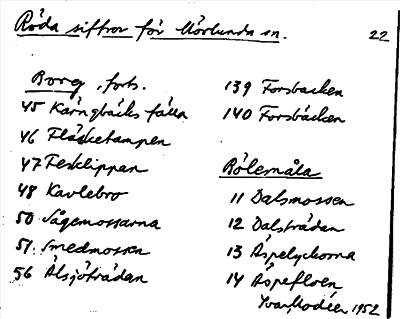 Röda siffror för Mörlunda sn. 22
Borg, forts.
45 Kärngbäcks fälla
46 Fläcketampen
47 Fesklippen
48 Kavlebro
50 Sågemossarna
51. Smedmossen
56 Älsjöträdan
139 Forsbacken
140 Forsbäcken
Bölemåla
11 Dalsmossen
12 Dalsträdan
13 Äspelyckorna
14 Äspefloen
Ivar Modéer 1952